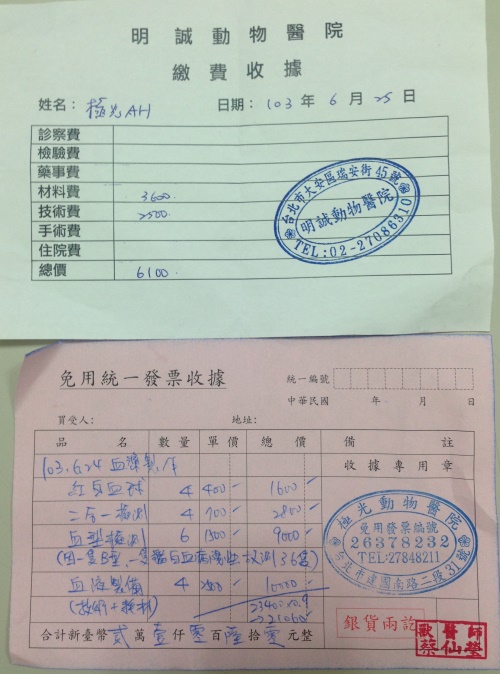 明誠動物醫院
繳費收據
姓名: 極光AH 日期: 103 年 6 月 25 日
診察費
檢驗費
藥事費
材料費 3600.
技術費 2500.
手術費
住院費
總價 6100.
台北市大安區瑞安街45號
明誠動物醫院
TEL:02-27086310
免用統一發票收據
統一編號
中華民國 年 月 日
買受人: 地址:
品名 數量 單價 總價 備註
收據專用章
103.6.24 血漿製作
紅灰血球 4 400 1600
二合一檢測 4 700 2800
血型檢測 6 1500 9000
(因一隻B型,一隻 血病陽性 故測 6隻)
血液製備 4 2500 10000
(技術+耗材)
23400×0.9
→21060
合計新臺幣貳萬壹仟零佰陸拾零元整
極光動物醫院
免用發票編號
26378232
TEL:27848211
台北市建國南路二段31號
銀貨兩訖
獸醫師
蔡仙瑩